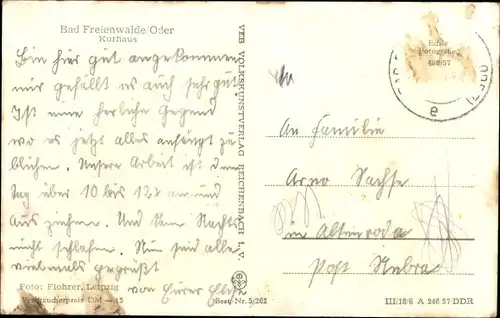 Bad Freienwalde/Oder
Kurhaus
Bin hier gut angekommen
mir gefällt es auch sehr gut
Ist eine herliche Gegend
wo es jetzt alles anfängt zu
blühen. Unsere Arbeit ist den
Tag über 10 bis 12 x an und
Aus ziehen. Und kann Nachts
nicht schlafen. Nun seid alle
vielmals gegrüßt
von Eurer
Foto: Flohrer, Leipzig
Verbraucherpreis DM -.15
VEB VOLKSKUNSTVERLAG REICHENBACH I. V.
Best.-Nr. 5/262
Echte
Fotografie
498/57
e
An Familie
Arno Sachse
in Altenroda
Post Nebra
III/18/6 A 246 57 DDR